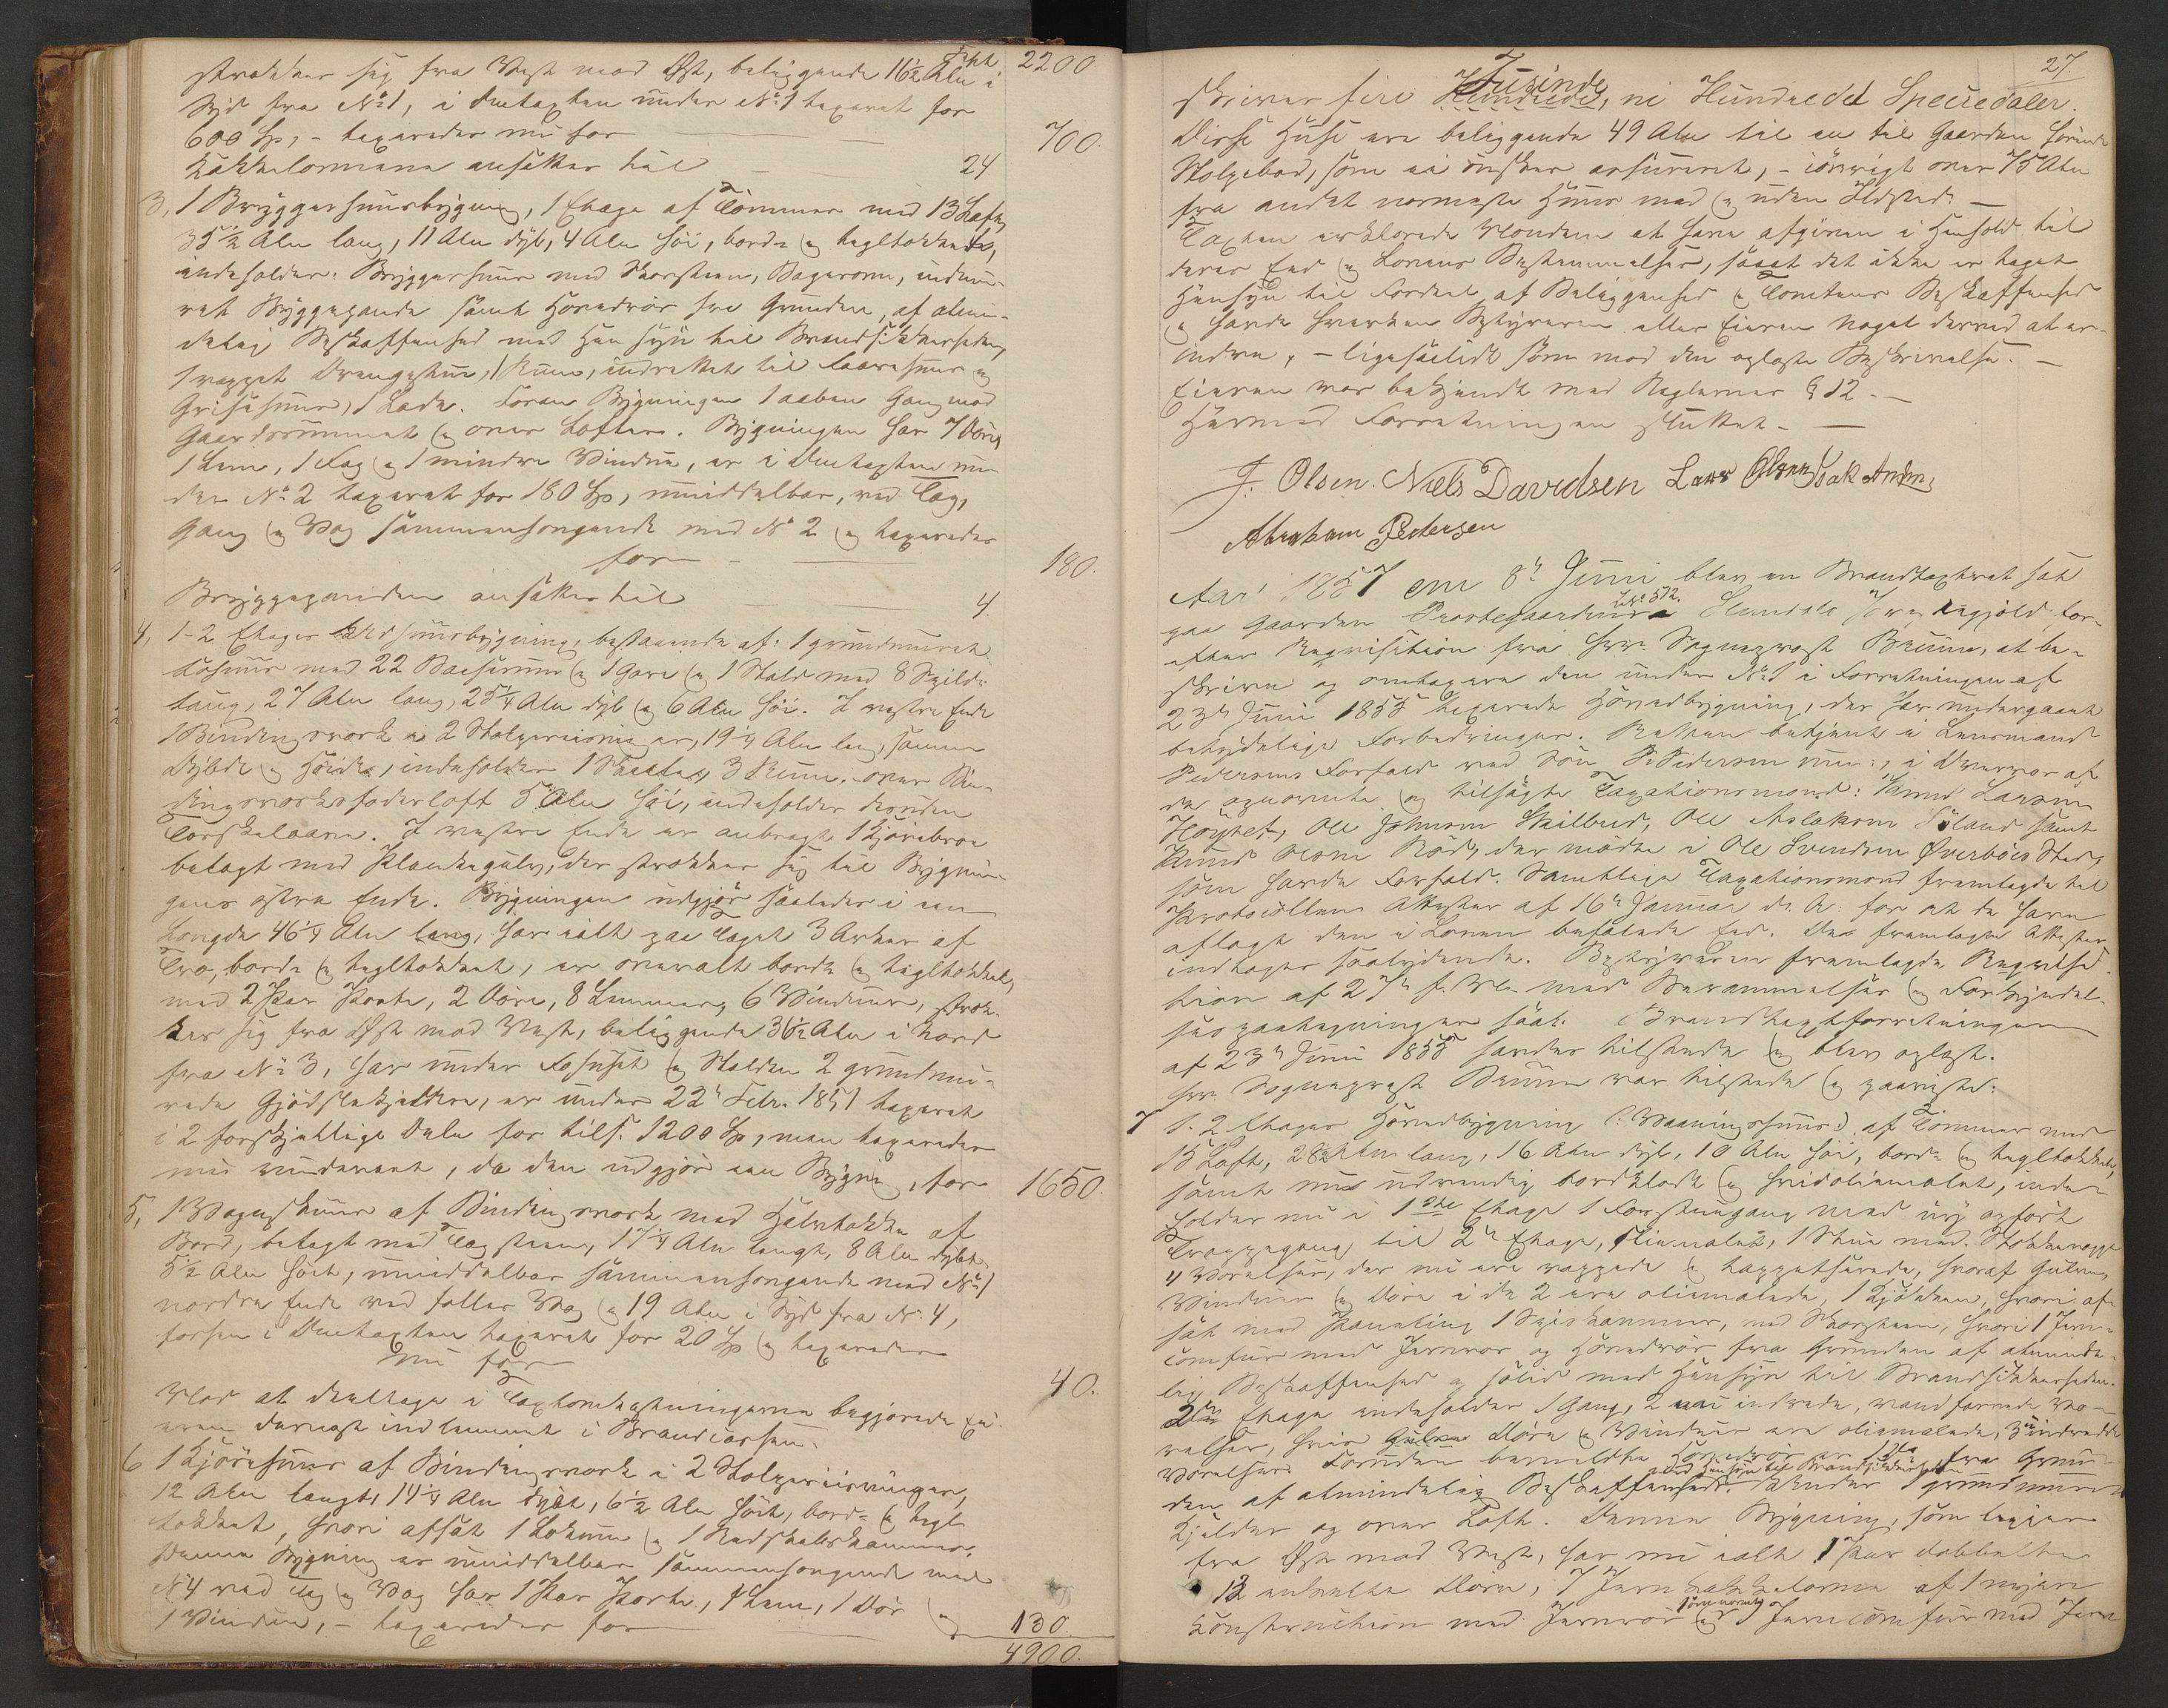 Trspt 2200
strækker sig fra Vest mod Øst, beliggende 16½ Alen i
Syd fra No 1, i Omtaxten under No 1 taxeret for
600 Sp, – taxeredes nu for 700.
Kakkelovnene ansættes til 24
3, 1 Bryggerhuusbygning, 1 Etage af Tømmer med 13 Laft,
35½ Alen lang, 11 Alen dyb, 4 Alen høi, bord- og tegltækket,
indeholder: Bryggerhuus med Skorsteen, Bagerovn, indmu-
ret Bryggepande samt Hovedrør fra Grunden, af almin-
delig Beskaffenhed med Hensyn til Brandsikkerheden,
1 Drengestue, 1 Rum, indrettet til Faarehuus og
Grisehuus, 1 Lade. Foran Bygningen 1 aaben Gang mod
Gaardsrummet og over Loftet. Bygningen har 7 Døre
1 Lem, 1 Fag og 1 mindre Vindue, er i Omtaxten un-
der No 2 taxeret for 180 Sp, umiddelbar, ved Tag,
Gang og Væg sammenhængende med No 2 og taxeredes
for – 180.
Bryggepanden ansættes til 4.
4, 1-2 Etages Udhuusbygning, bestaaende af: 1 grundmuret
Fæhuus med 22 Baaserum og 1 Gare og 1 Stald med 8 Spild-
taug, 27 Alen lang, 25¼ Alen dyb og 6 Alen høi. I vestre Ende
1 Bindingsværk i 2 Stolpereisninger, 19¼ Alen lang, samme
Dybde og Høide, indeholder 1 Skeetag, 3 Rum. over Bin-
dingsværksfoderloft 5 Alen høi, indeholder
Tærskelaaven. I vestre Ende er anbragt 1 Kjørebroe
belagt med Plankegulv, der strækker sig til Bygnin-
gens østre Ende. Bygningen udgjør saaledes i een
Længde 46¼ Alen lang, har ialt paa Taget 3 Arker af
Træ, bord- og tegltækket, er overalt bord- og tegltækket,
med 2 Par Porte, 2 Døre, 8 Lemmer, 6 Vinduer, stræk-
ker sig fra Øst mod Vest, beliggende 36½ Alen i Nord
fra No 3, har under Fæhuset og Stalden 2 grundmu-
rede Gjødselkjeldere, er under 22de Febr. 1851 taxeret
i 2 forskjellige Dele for tils. 1200 Sp, men taxeredes
nu undereent, da den udgjør een Bygning, for 1650.
5, 1 Vognskuur af Bindingsværk med Halvtække af
Bord, belagt med Tagsteen, 17¼ Alen langt, 8 Alen dybt
5½ Alen høit, umiddelbar sammenhængende med No 1
nordre Ende ved fælles Væg og 19 Alen i Syd fra No 4,
forhen i Omtaxten taxeret for 20 Sp og taxeredes
nu for 40.
Ved at deeltage i Taxtomkostningerne begjærede Ei-
eren dernæst indlemmet i Brandcassen:
6 1 Kjørehuus af Bindingsværk i 2 Stolpereisninger,
12 Alen langt, 14¼ Alen dybt, 6½ Alen høit, bord- og tegl-
tækket, hvori afsat 1 Lokum og 1 Redskabskammer.
Denne Bygning er umiddelbar sammenhængende med
No 4 ved Tag og Væg har 1 Par Porte, 1 Lem, 1 Dør og
1 Vindue, – taxeredes for 130.
4900.
27.
Tusinde
skriver fire Hundrede, ni Hundrede Speciedaler.
Disse Huse ere beliggende 49 Alen til en til Gaarden hørende
Stolpebod, som ei ønskes assureret, – iøvrigt over 75 Alen
fra andet nærmeste Huus med og uden Ildsted. –
Taxten erklærede Mændene at have afgivet i Henhold til
deres Eed og Lovens Bestemmelser, saa at det ikke er taget
Hensyn til Fordeel af Beliggenhed og Tomtens Beskaffenhed
og havde hverken Bestyreren eller Eieren Noget derved at er-
indre, – ligesaalidt som mod den oplæste Beskrivelse. –
Eieren var bekjendt med Reglernes § 12. –
Hermed Forretningen sluttet. –
F. Olsen. Niels Davidsen Lars Olsen Isak Andrs.
Abraham Pedersen
Aar 1857 den 8de Juni blev en Brandtaxt sat
paa Gaarden Præstegaarden Lb No 572. Skjold for-
efter Reqvisition fra Herr Sogneprest Bruun, at be-
skrive og omtaxere den under No 1 i Forretningen af
23de Juni 1855 taxerede Hovedbygning, der har undergaaet
betydelige Forbedringer. Retten betjent i Lensmand
Pedersens Forfald ved Søn P. Pedersen, i Overvær af
de opnævnte og tilsagte Taxationsmænd: Knud Larsen
Høysæt, Ole Johnsen Skeilbred, Ole Aslaksen Øland samt
Knud Olsen Rød, der mødte i Ole Svendsen Øverbøes Sted,
som havde Forfald. Samtlige Taxationsmænd fremlagde til
Protocollen Attester af 16de Januar d. A. for at de have
aflagt den i Loven befalede Eed. De fremlagte Attester
indtages saalydende. Bestyreren fremlagde Reqvisi-
tion af 27de f. M. med Berammelses og Forkyndel-
sespaategninger saal. Brandtaxtforretningen
af 23de Juni 1855 havdes tilstede og blev oplæst.
Hr. Sogneprest Bruun var tilstede og paaviste:
1 1. 2 Etages Hovedbygning (: Vaaningshuus :) af Tømmer med
15 Laft, 28½ Alen lang, 16 Alen dyb, 10 Alen høi, bord- og tegltækket,
samt nu udvendig bordklædt og hvidoliemalet, inde-
holder nu i 1ste Etage 1 Forstuegang med ny opført
Trappegang til 2den Etage, oliemalet, 1 Stue med Stokkevægge
4 Værelser, der nu ere pappede og tappetserede, hvoraf Gulve,
Vinduer og Døre i de 2 ere oliemalede, 1 Kjøkken, hvori af-
sat med Paneling 1 Spisekammer, med Skorsteen, hvori 1 Jern-
comfur med Jernrør og Hovedrør fra Grunden af alminde-
lig Beskaffenhed og solid med Hensyn til Brandsikkerheden.
2den Etage indeholder 1 Gang, 2 indrede, Væ-
relser, hvis Gulve Døre og Vinduer ere oliemalede, 3 uindredte
Værelser. Foruden bemeldte Hovedrør er 1 do fra Grun-
med Hensyn til Brandsikkerheden
den af almindelig Beskaffenhed. Under 1 grundmuret
Kjelder og over Loft. Denne Bygning, som ligger
fra Øst mod Vest, har nu ialt 1 Par dobbelte
12 enkelte Døre, 7 Jernkakkelovne af nyere
Construction med Jernrør og 1 Jerncomfur med Jern